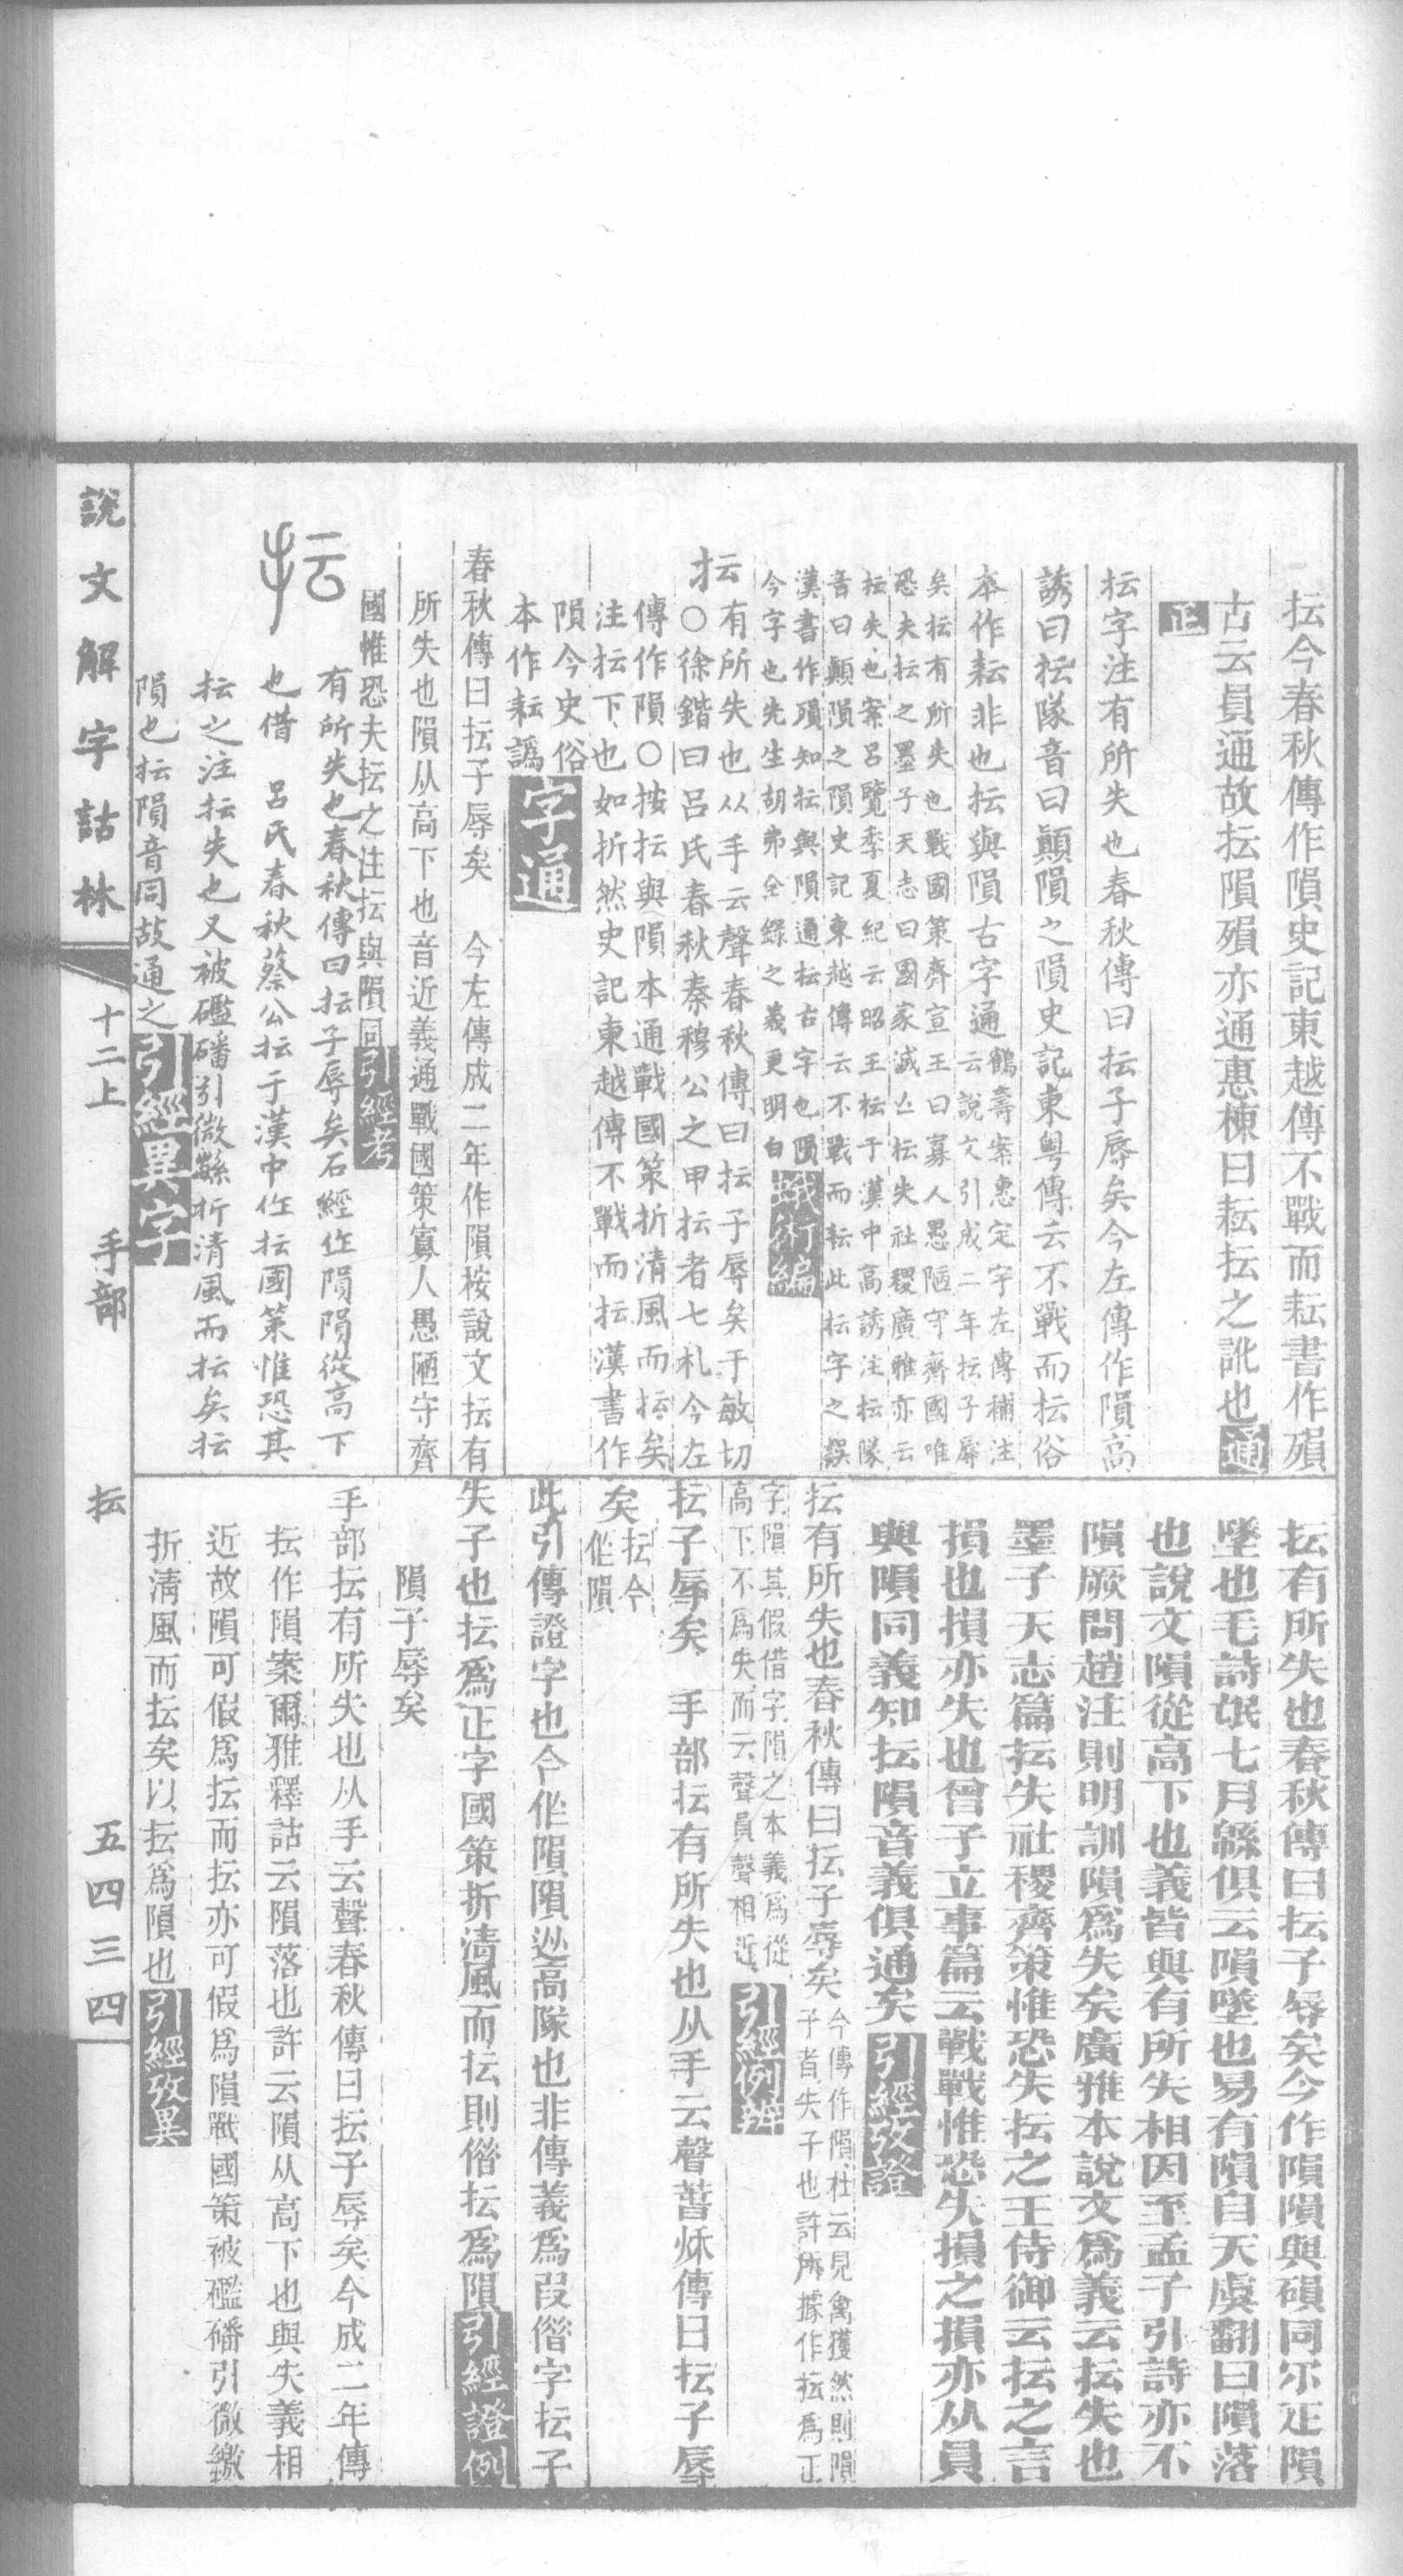 抎今春秋傳作隕史記東越傳不戰而耘書作殞
古云員通故抎隕殞亦通惠棟曰耘抎之訛也通
正
抎字注有所失也春秋傳曰抎子辱矣今左傳作隕高
誘曰抎隊音曰顚隕之隕史記東粵傳云不戰而抎俗
本作耘非也抎與隕古字通鶴壽案惠定宇左傳補注
云說文引成二年抎子辱
矣抎有所失也戰國策齊宣王曰寡人愚陋守齊國唯
恐夫抎之墨子天志曰國家滅亡抎失社稷廣雅亦云
抎失也案呂覽季夏紀云昭王抎于漢中高誘注抎隊
音曰顚隕之隕史記東越傳云不戰而耘此抎字之誤
漢書作殞知抎與隕通抎古字也隕
今字也先生胡弗全錄之義更明白蛾術編
抎有所失也从手云聲春秋傳曰抎子辱矣于敏切
○徐鍇曰呂氏春秋秦穆公之甲抎者七札今左
傳作隕○按抎與隕本通戰國策折清風而抎矣
注抎下也如折然史記東越傳不戰而抎漢書作
隕今史俗
本作耘譌字通
春秋傳曰抎子辱矣 今左傳成二年作隕桉說文抎有
所失也隕从高下也音近義通戰國策寡人愚陋守齊
國惟恐夫抎之注抎與隕同引經考
抎
有所失也春秋傳曰抎子辱矣石經作隕隕從高下
也借 呂氏春秋蔡公抎于漢中作抎國策惟恐其
抎之注抎失也又被礛磻引微繳折清風而抎矣抎
隕也抎隕音同故通之引經異字
抎有所失也春秋傳曰抎子辱矣今作隕隕與磒同尓疋隕
墜也毛詩氓七月緜俱云隕墜也易有隕自天虞翻曰隕落
也說文隕從高下也義皆與有所失相因至孟子引詩亦不
隕厥問趙注則明訓隕爲失矣廣雅本說文爲義云抎失也
墨子天志篇抎失社稷齊策惟恐失抎之王侍御云抎之言
損也損亦失也曾子立事篇云戰戰惟恐失損之損亦从員
與隕同義知抎隕音義俱通矣引經攷證
抎有所失也春秋傳曰抎子辱矣今傳作隕杜云見禽獲然則隕
子者失子也許所據作抎爲正
字隕其假借字隕之本義爲從
高下不爲失而云聲員聲相近引經例辨
抎子辱矣 手部抎有所失也从手云聲萅秌傳曰抎子辱
矣抎今
作隕
此引傳證字也今作隕隕從高隊也非傳義爲叚借字抎子
失子也抎爲正字國策折清風而抎則借抎爲隕引經證例
隕子辱矣
手部抎有所失也从手云聲春秋傳曰抎子辱矣今成二年傳
抎作隕案爾雅釋詁云隕落也許云隕从高下也與失義相
近故隕可假爲抎而抎亦可假爲隕戰國策被礛磻引微繳
折清風而抎矣以抎爲隕也引經攷異
說文解字詁林
十二上 手部 抎 五四三四